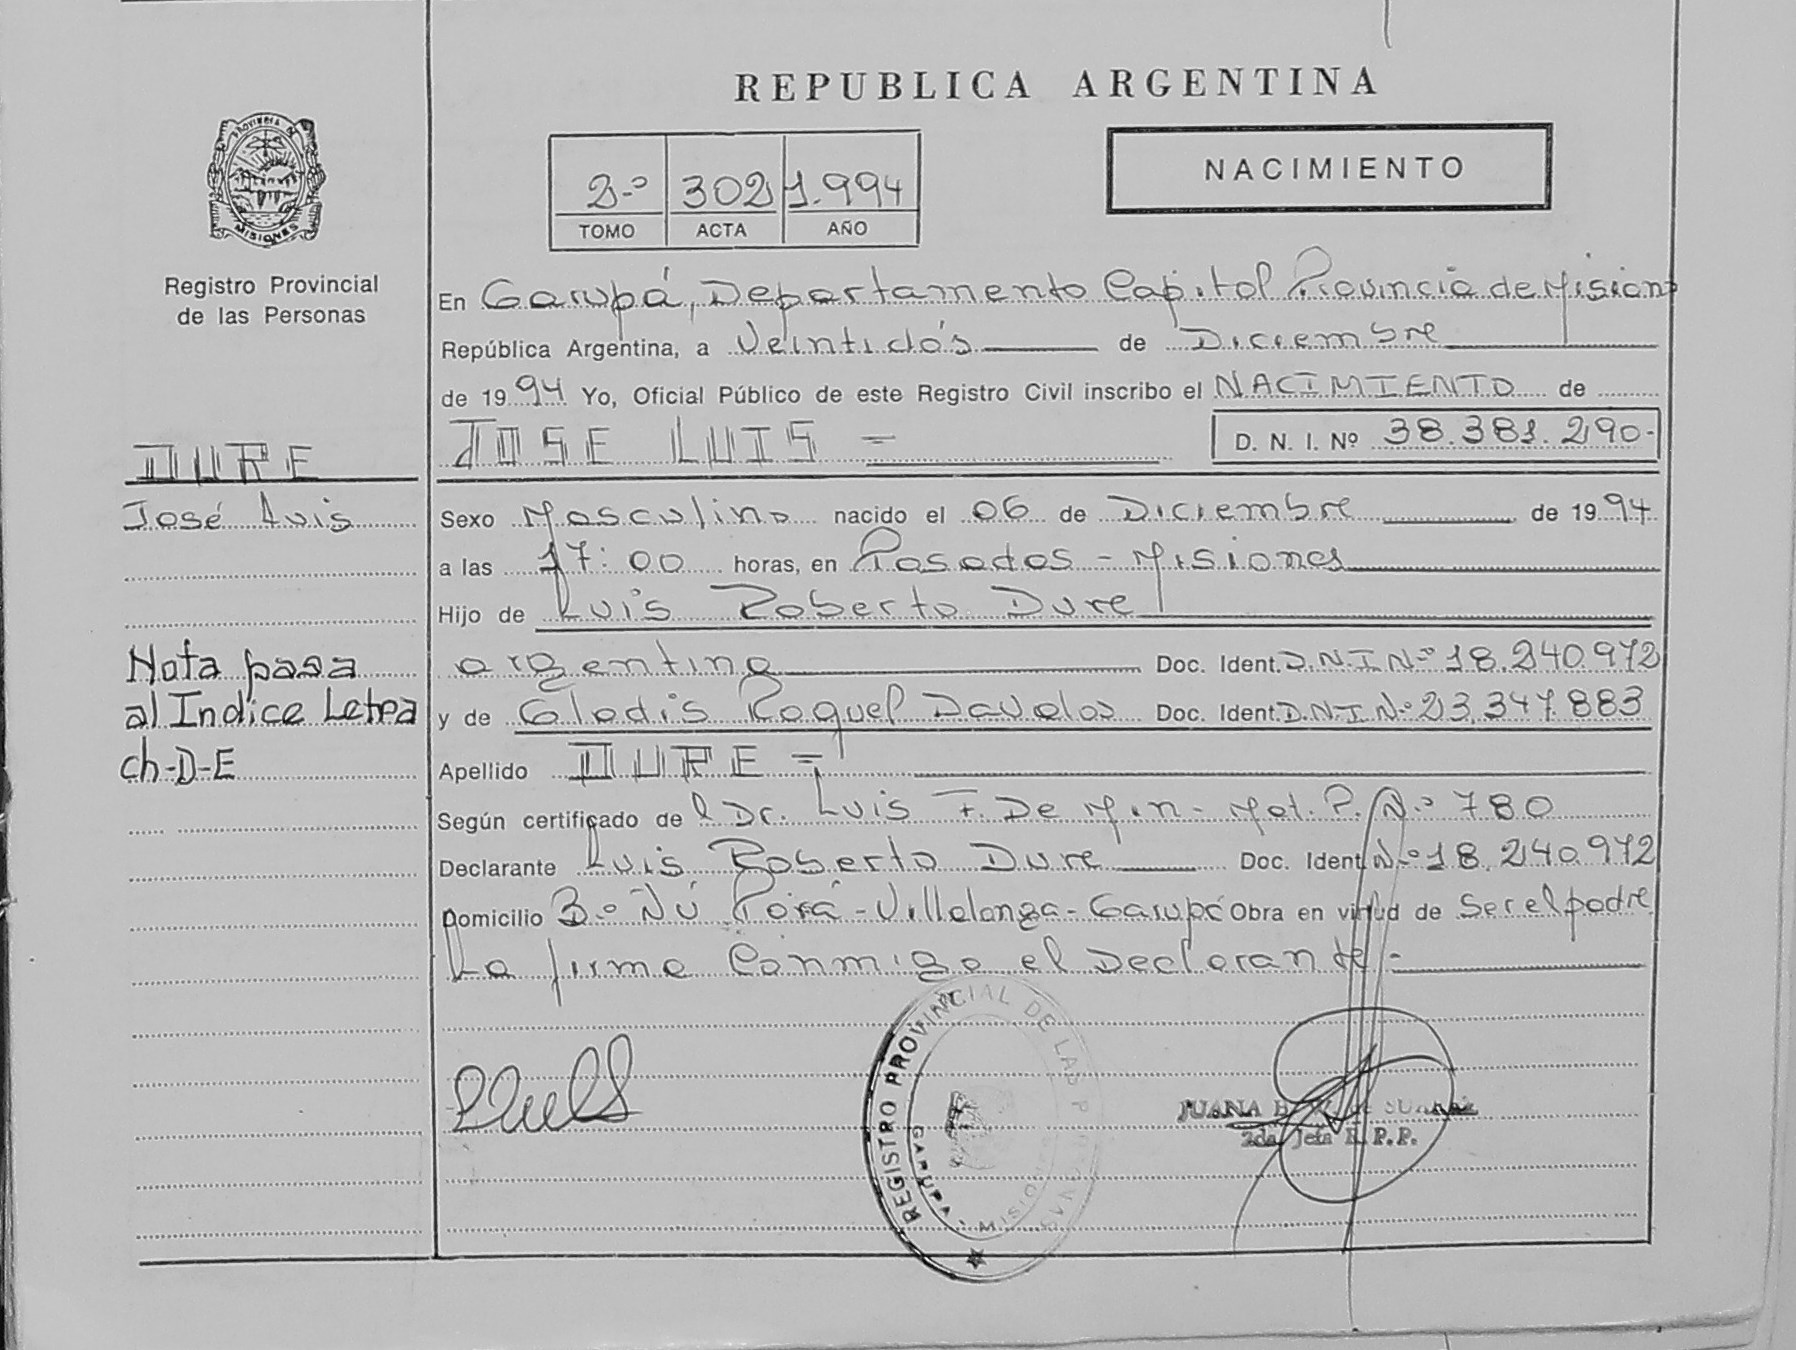 REPUBLICA ARGENTINA
PROVINCIA DE
MISIONES
Registro Provincial
de las Personas
NACIMIENTO
2-º 302 1.994
TOMO ACTA AÑO
En Garupá, Departamento Capital Provincia de Misiones
República Argentina, a Veintidós de Diciembre
de 1994 Yo, Oficial Público de este Registro Civil inscribo el NACIMIENTO de
JOSE LUIS = D. N. I. Nº 38.381.290-
DURE
José Luis
Sexo Masculino nacido el 06 de Diciembre de 1994
a las 17:00 horas, en Posadas - Misiones
Hijo de Luis Roberto Dure
argentina Doc. Ident. D.N.I Nº 18.240.972
y de Gladis Raquel Davalos Doc. Ident. D.N.I Nº 23.347.883
Nota pasa
al Indice Letra
ch-D-E
Apellido DURE =
Según certificado del Dr. Luis F. De Min - Mat. P. Nº 780
Declarante Luis Roberto Dure Doc. Ident. Nº 18.240.972
Domicilio Bº Ñú Porá - Villalonga - Garupá Obra en virtud de Ser el padre
La firma Conmigo el Declarante -
REGISTRO PROVINCIAL DE LAS PERSONAS
GARUPA - MISIONES
JUANA de SUAREZ
2da Jefa R.P.P.